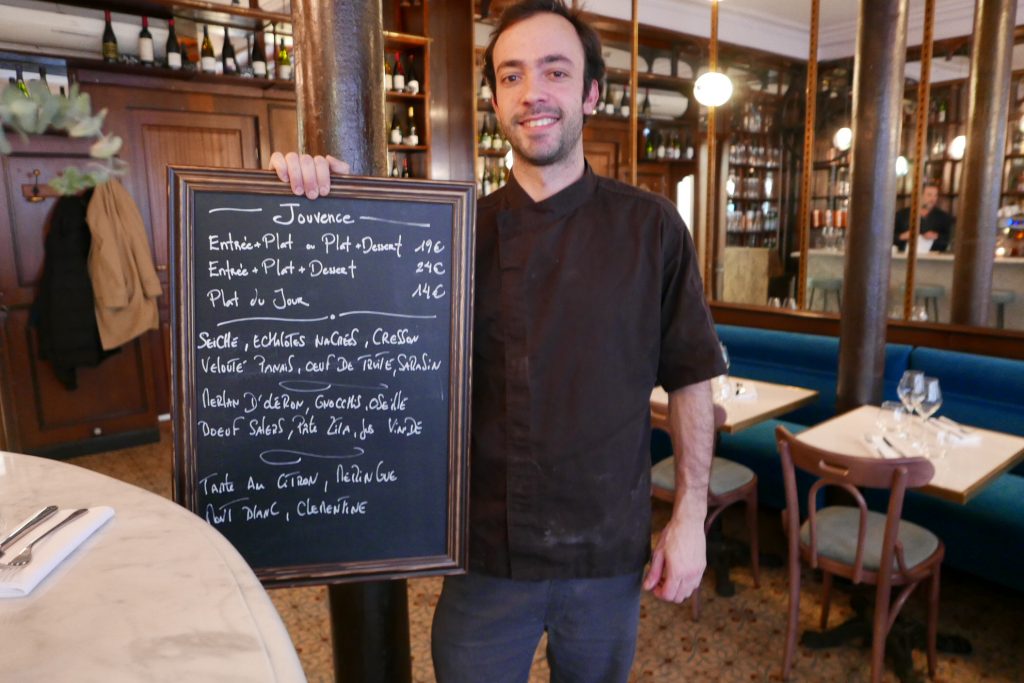 Jouvence
Entrée+Plat ou Plat+Dessert 19€
Entrée+Plat+Dessert 24€
Plat du Jour 14€
Seiche, Echalotes Nacrées, Cresson
Velouté Panais, Oeuf de Truite, Sarasin
Merlan d'Oléron, Gnocchis, Oseille
Boeuf Salers, Pâte Zita, Jus Viande
Tarte au Citron, Meringue
Mont Blanc, Clementine